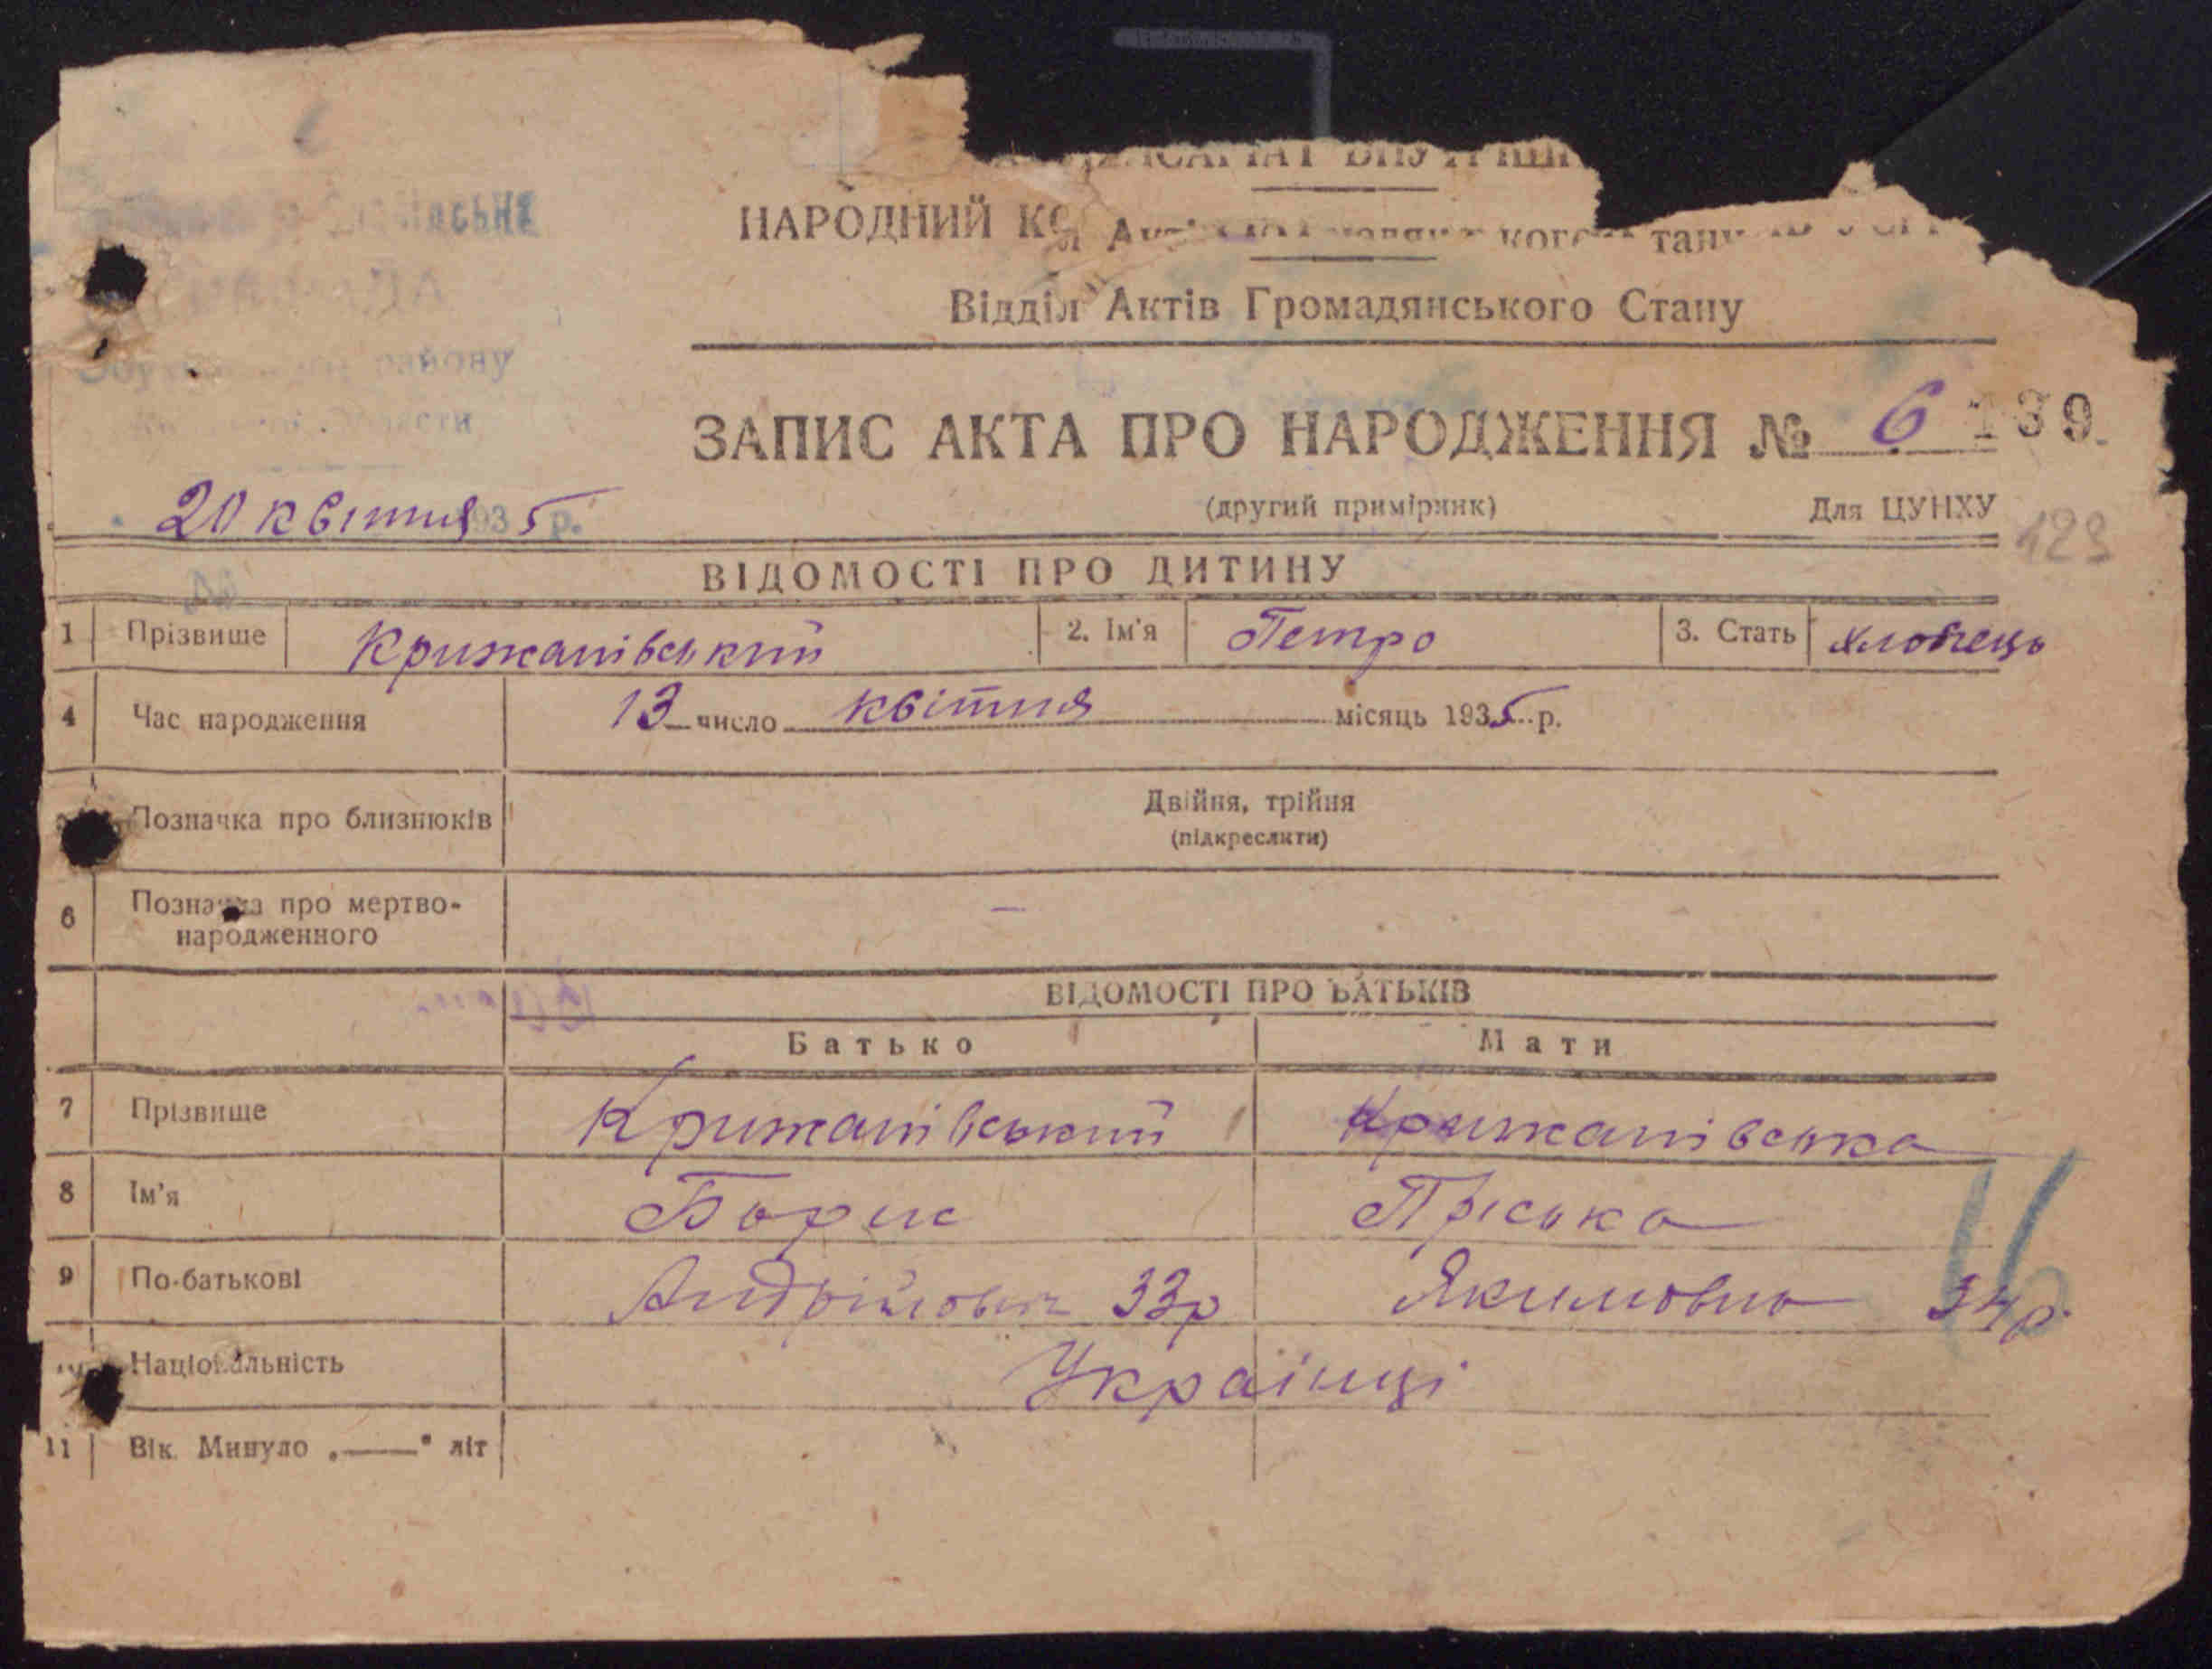 НАРОДНИЙ
Відділ Актів Громадянського Стану
ЗАПИС АКТА ПРО НАРОДЖЕННЯ № 6 139
20 квітня 1935 р.
(другий примірник) Для ЦУНХУ
129
ВІДОМОСТІ ПРО ДИТИНУ
1 Прізвище Крижанівський 2. Ім'я Петро 3. Стать хлопець
4 Час народження 13 число квітня місяць 1935 р.
Позначка про близнюків Двійня, трійня
(підкреслити)
6 Позначка про мертво-
народженного —
ВІДОМОСТІ ПРО БАТЬКІВ
Батько Мати
7 Прізвище Крижанівський Крижанівська
8 Ім'я Борис Пріська
9 По-батькові Андрійович 33р Якимовна 34р.
Національність Українці
11 Вік. Минуло „——" літ